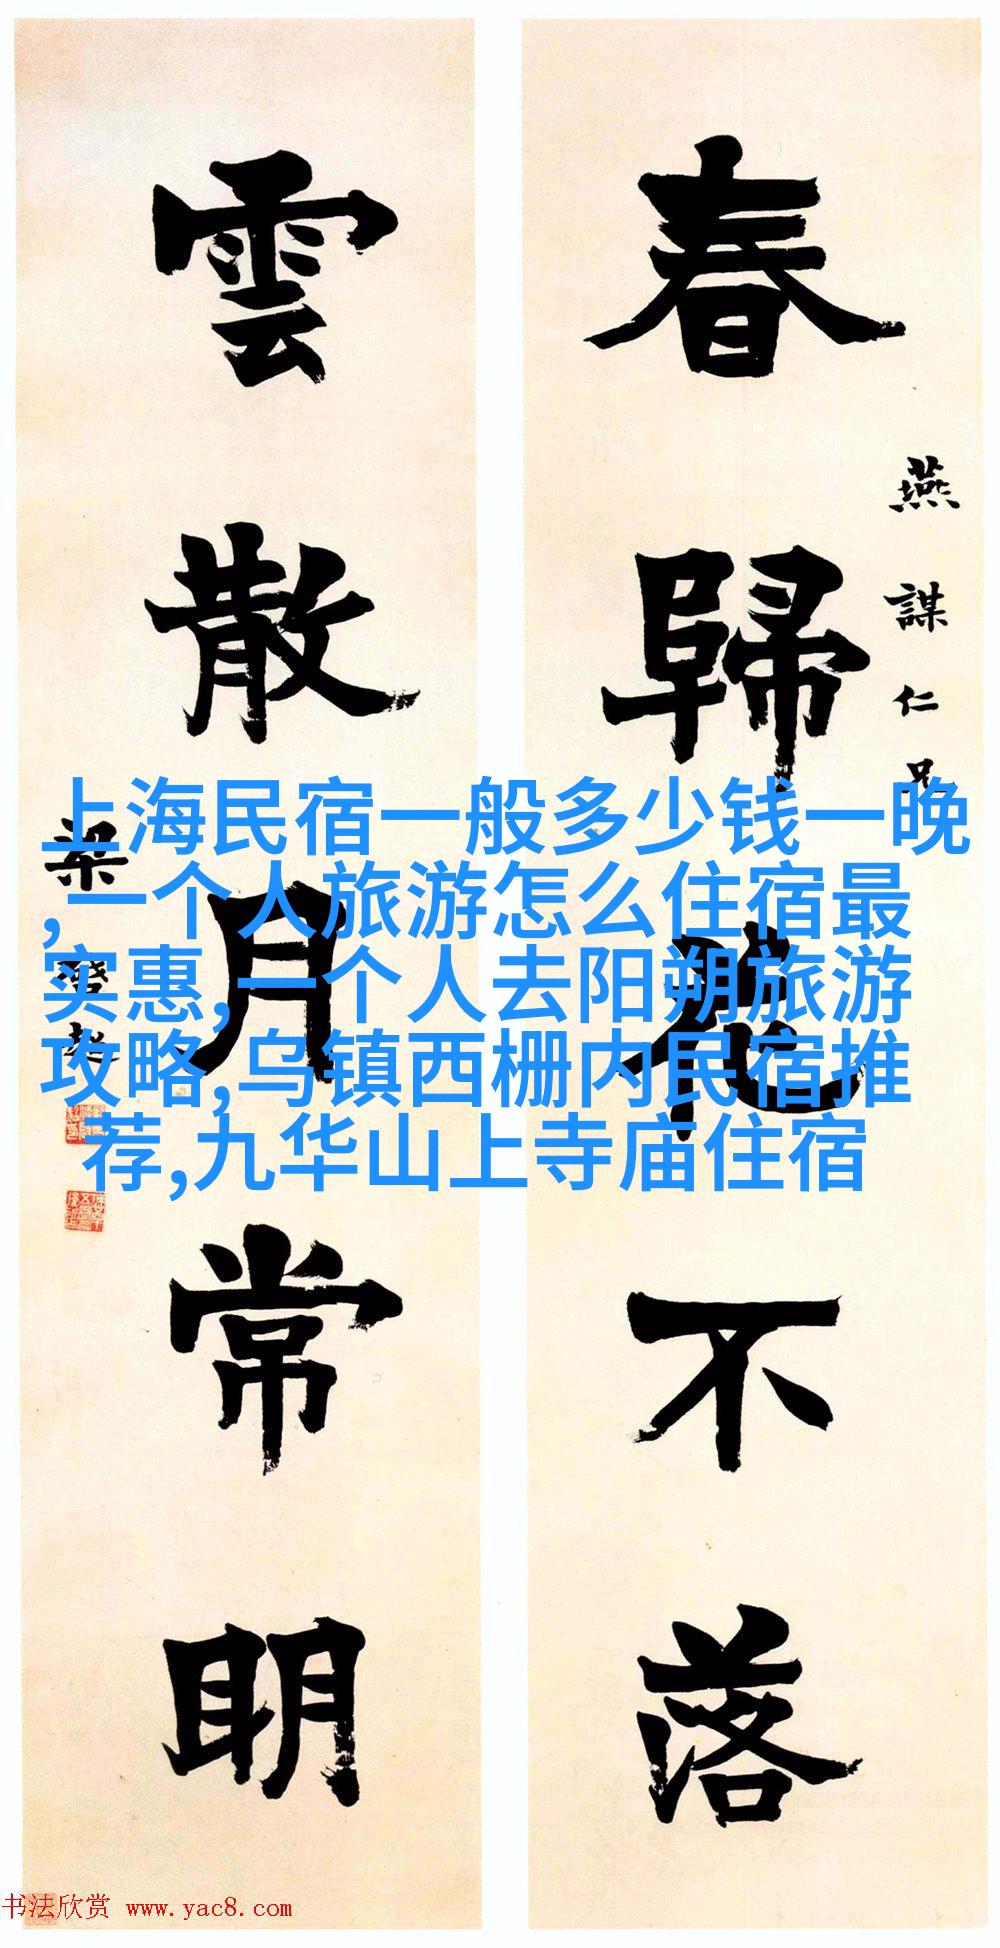 春歸花不落
燕謀仁兄
雲散月常明
梁啓超
上海民宿一般多少钱一晚
,一个人旅游怎么住宿最
实惠,一个人去阳朔旅游
攻略,乌镇西栅内民宿推
荐,九华山上寺庙住宿
书法欣赏 www.yac8.com